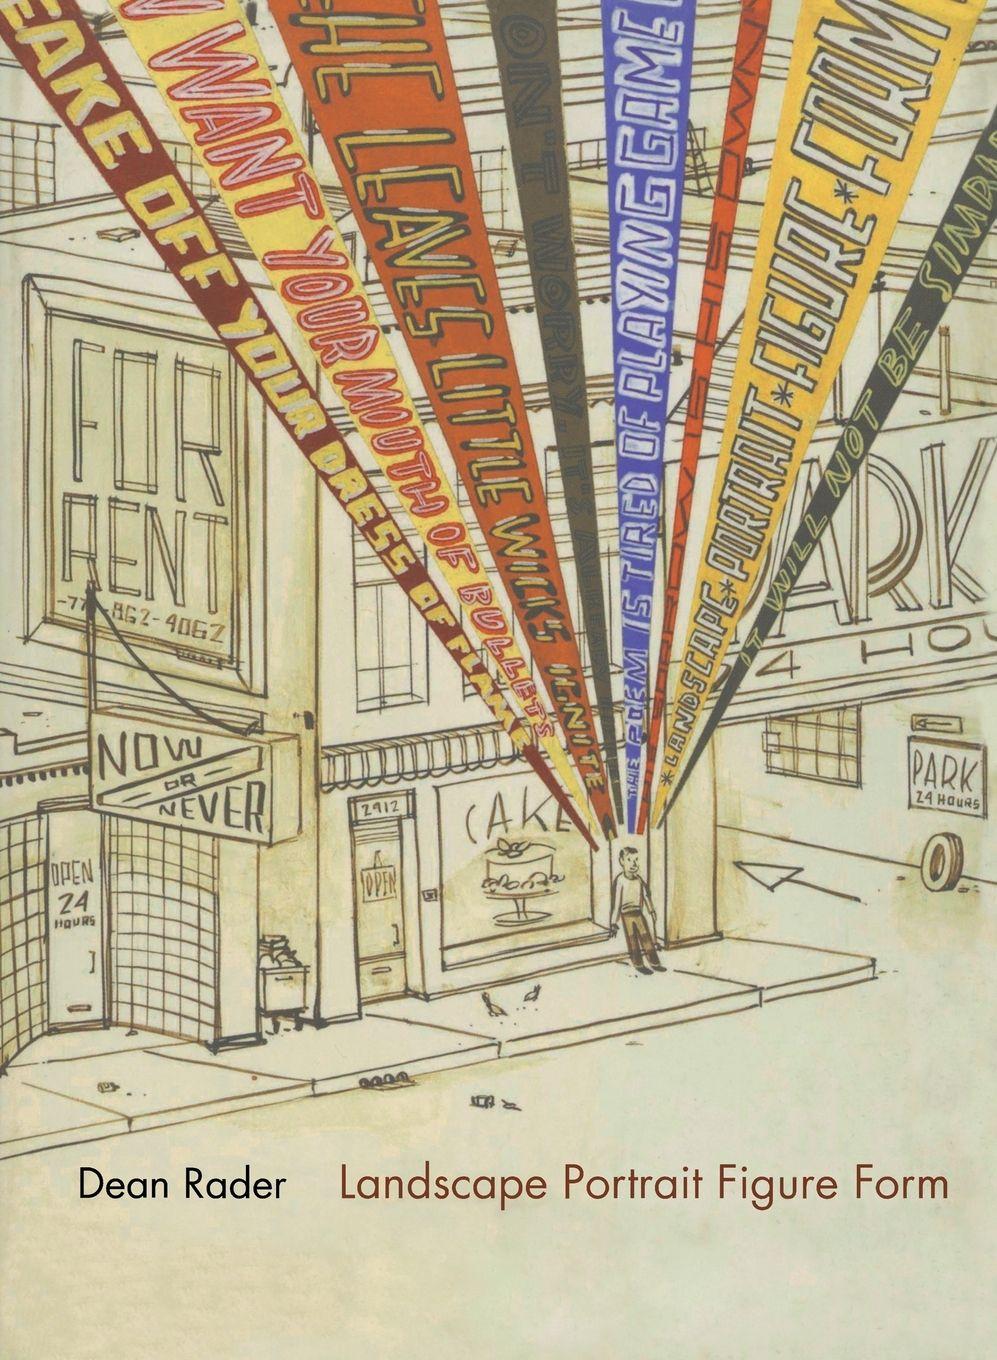 EAKE OFF YOUR DRESS OF FLAME
WANT YOUR MOUTH OF BULLETS
THE LEAVES LITTLE WICKS IGNITE
ON'T WORRY IT'S
THE POEM IS TIRED OF PLAYING GAME
*LANDSCAPE*PORTRAIT*FIGURE*FORM
IT WILL NOT BE
FOR
RENT
862-4062
NOW
OR
NEVER
OPEN
24
HOURS
2912
OPEN
CAKE
PARK
24 HOURS
ARK
4 HOU
Dean Rader
Landscape Portrait Figure Form